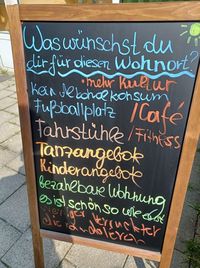 Was wünschst du
dir für diesen Wohnort?
• mehr Kultur
kein Alkoholkonsum
Fußballplatz
/Café
Fahrstühle
/Fitness
Tanzangebote
Kinderangebote
bezahlbare Wohnung
es ist schön so wie es ist